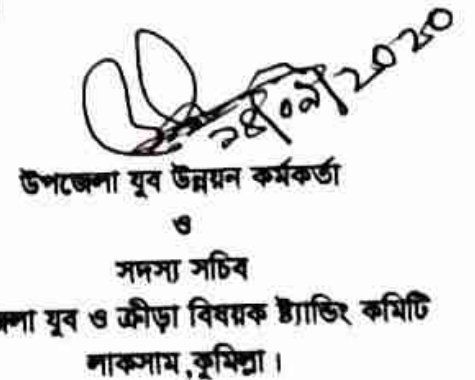 ২৪/০৯/2020
উপজেলা যুব উন্নয়ন কর্মকর্তা
ও
সদস্য সচিব
যুব ও ক্রীড়া বিষয়ক ষ্ট্যান্ডিং কমিটি
লাকসাম,কুমিল্লা।